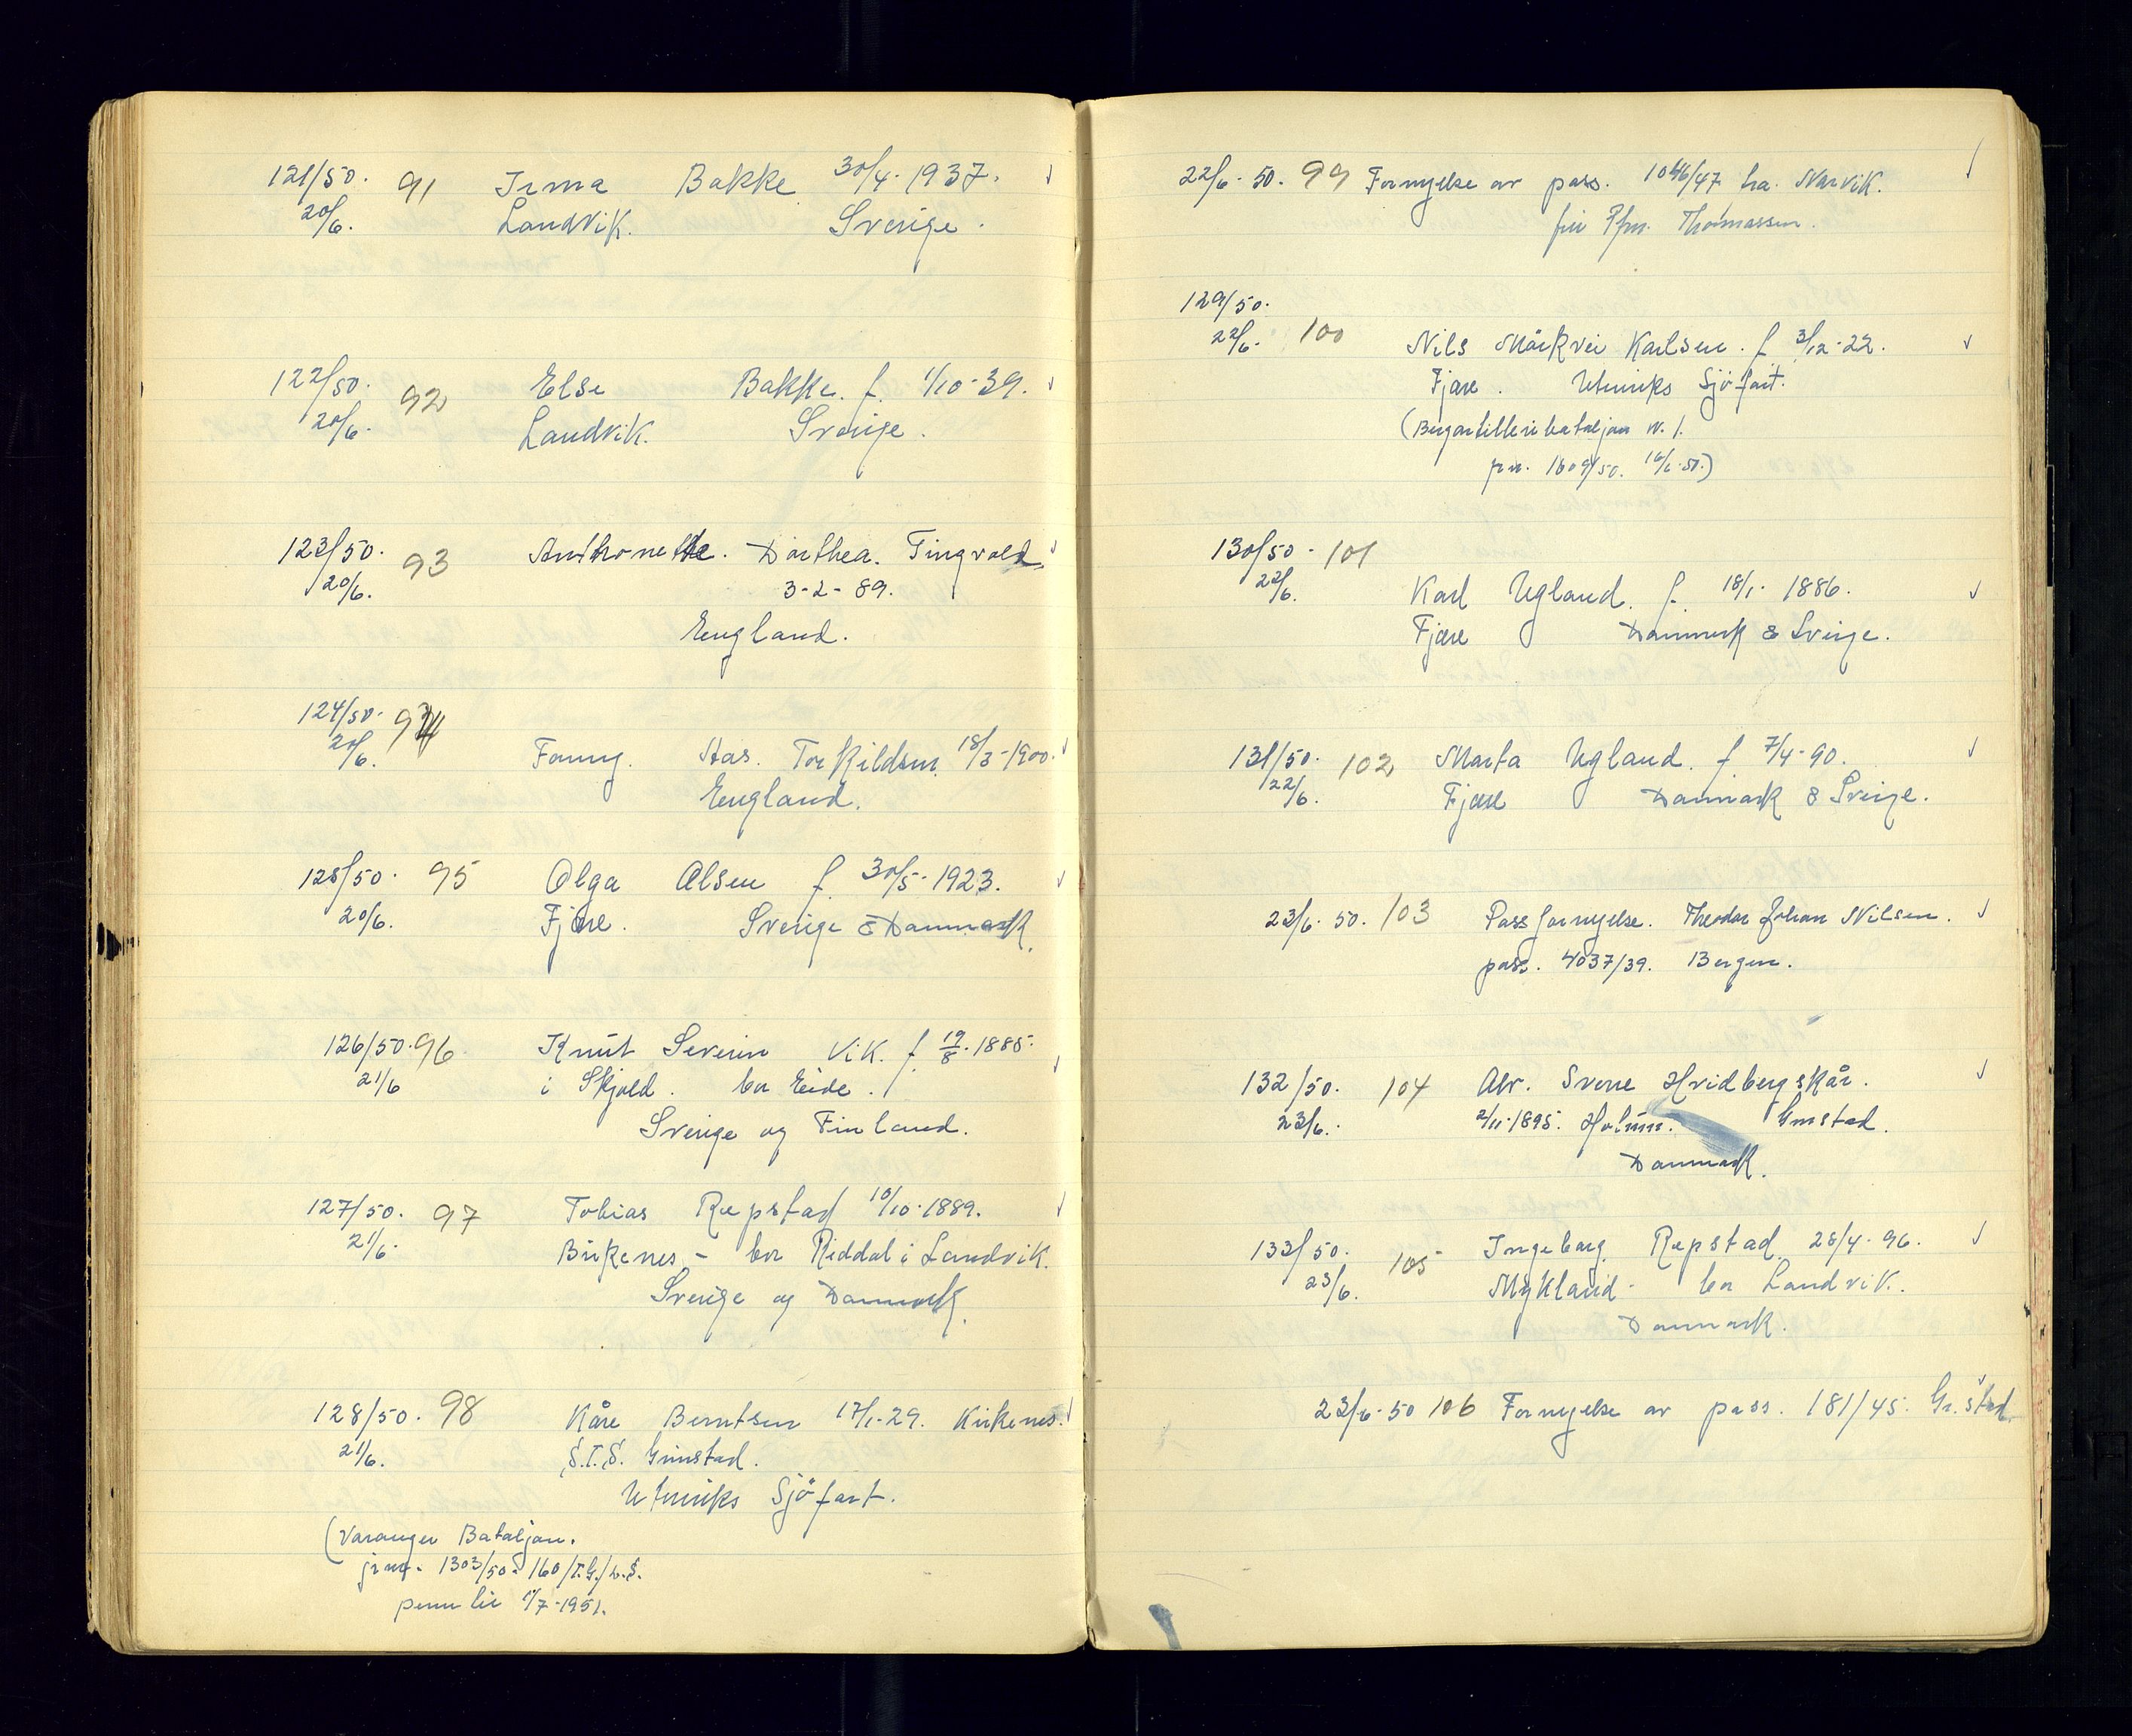 121/50. 91 Irma Bakke 30/4. 1937.
20/6. Landvik. Sverige.
122/50. 92 Else Bakke. f. 1/10-39.
20/6. Landvik. Sverige.
123/50. 93 Anthonette. Dorthea. Tingvold.
20/6. 3-2-89.
England.
124/50. 94
20/6. Fanny. Aas. Torkildsen. 18/3-1900.
England.
125/50. 95 Olga Olsen f 30/5-1923.
20/6. Fjære. Sverige & Danmark.
126/50. 96 Knut Severin Vik. f. 19/8. 1885.
21/6 i Skjold. bor Eide.
Sverige og Finland.
127/50. 97 Tobias Repstad 10/10-1889.
21/6. Birkenes - bor Riddal i Landvik.
Sverige og Danmark.
128/50. 98 Kåre Berntsen 17/1-29. Kirkenes.
21/6. S.T.S. Grimstad.
Utenriks Sjöfart.
(Varanger Bataljon.
jrnr. 1303/50- 160/T.G./
perm til 1/7-1951.
22/6-50. 99 Fornyelse av pass. 1046/47 fra. Narvik.
for Thomassen.
129/50.
22/6. 100 Nils Mörkvei Karlsen. f 3/12-22.
Fjære. Utenriks Sjöfart.
(Bergartilleribataljon nr. 1.
jnr. 1609/50. 16/6-50.)
130/50. 101
22/6. Karl Ugland. f. 18/1. 1886.
Fjære Danmark & Sverige.
131/50. 102 Marta Ugland. f 7/4-90.
22/6. Fjære Danmark & Sverige.
23/6-50. 103 Passfornyelse. Theodor Johan Nilsen.
pass. 4037/39. Bergen.
132/50. 104 Alv. Sverre Hvidbergskår.
23/6. 2/11-1895. Grmstad.
Danmark.
133/50. 105 Ingeborg. Repstad. 28/4-96.
23/6. Mykland- bor Landvik.
Danmark.
23/6-50 106 Fornyelse av pass. 181/45. Gr.stad.